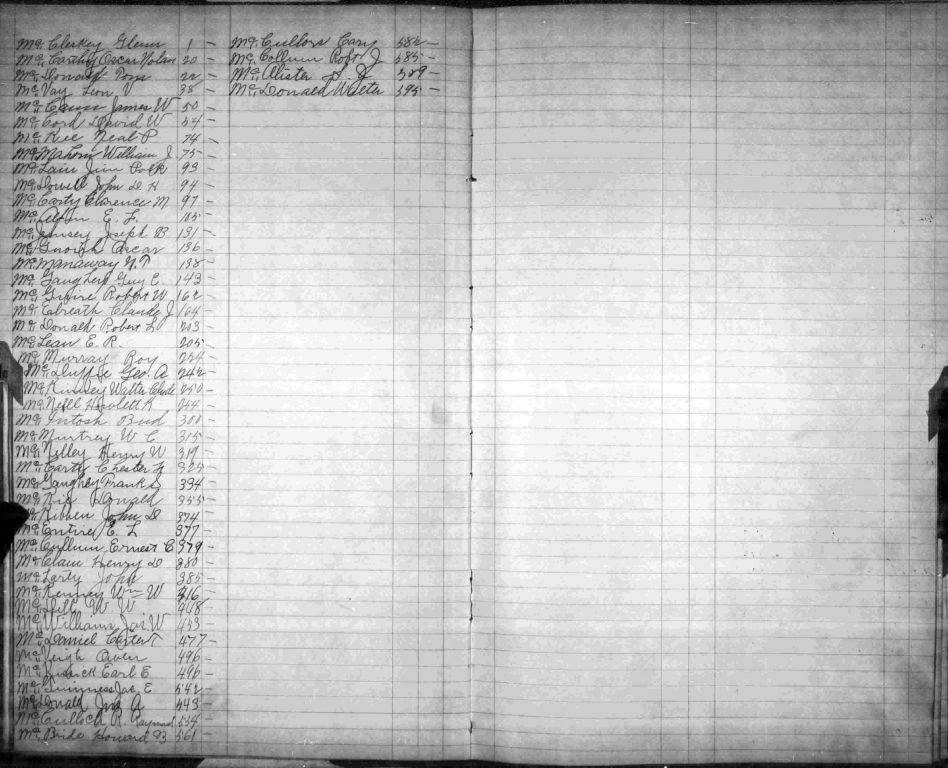 McCleskey Glenn 1 —
McCarthy Oscar Nolan 20 —
McDonald Tom 22 —
McVay Leon V 38 —
James W 50 —
McCord David W 54 —
McKee Neal P 74 —
McMahon William J. 75 —
McLain Jim Polk 93 —
McDowell John D H 94 —
McCarty Clarence M 97 —
E. L.
Joseph B 131 —
Oscar 136 —
McManaway N. T 138 —
McGaughey Guy E. 143 —
McGuire Robert W 162 —
Claude J 164 —
McDonald Robert L 203 —
McLean E. R. 205 —
McMurray Roy 224 —
McDuffie Geo. A 242 —
McKinney Walter Clyde 250 —
McNeill Howlett R —
McIntosh Bud 300 —
McMurtrey W C 315 —
Henry W 319 —
McCarty Chester —
McGaughey Frank 334 —
Donald 355 —
McKibben John D 374 —
McEntire E. L 377 —
McCullum Ernest C 379 —
McClain Henry D 380 —
McLarty John 385 —
McKenney Wm W 416 —
McDill W W 448 —
McWilliams Jas. W 453 —
McDaniel Carter T 477 —
McVeigh Owen 496 —
Earl E 496 —
McGuinness Jas. E 542 —
McDonald Jno A 543 —
McCulloch R. Raymond 554 —
McBride Howard B 561 —
McCullors Cary 582 —
McCollum Robt J 585 —
McAlister 589 —
McDonald Walter 595 —